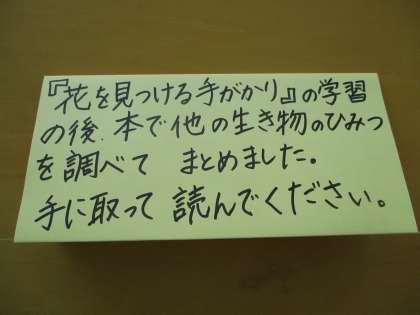 『花を見つける手がかり』の学習
の後、本で他の生き物のひみつ
を調べて まとめました。
手に取って 読んでください。